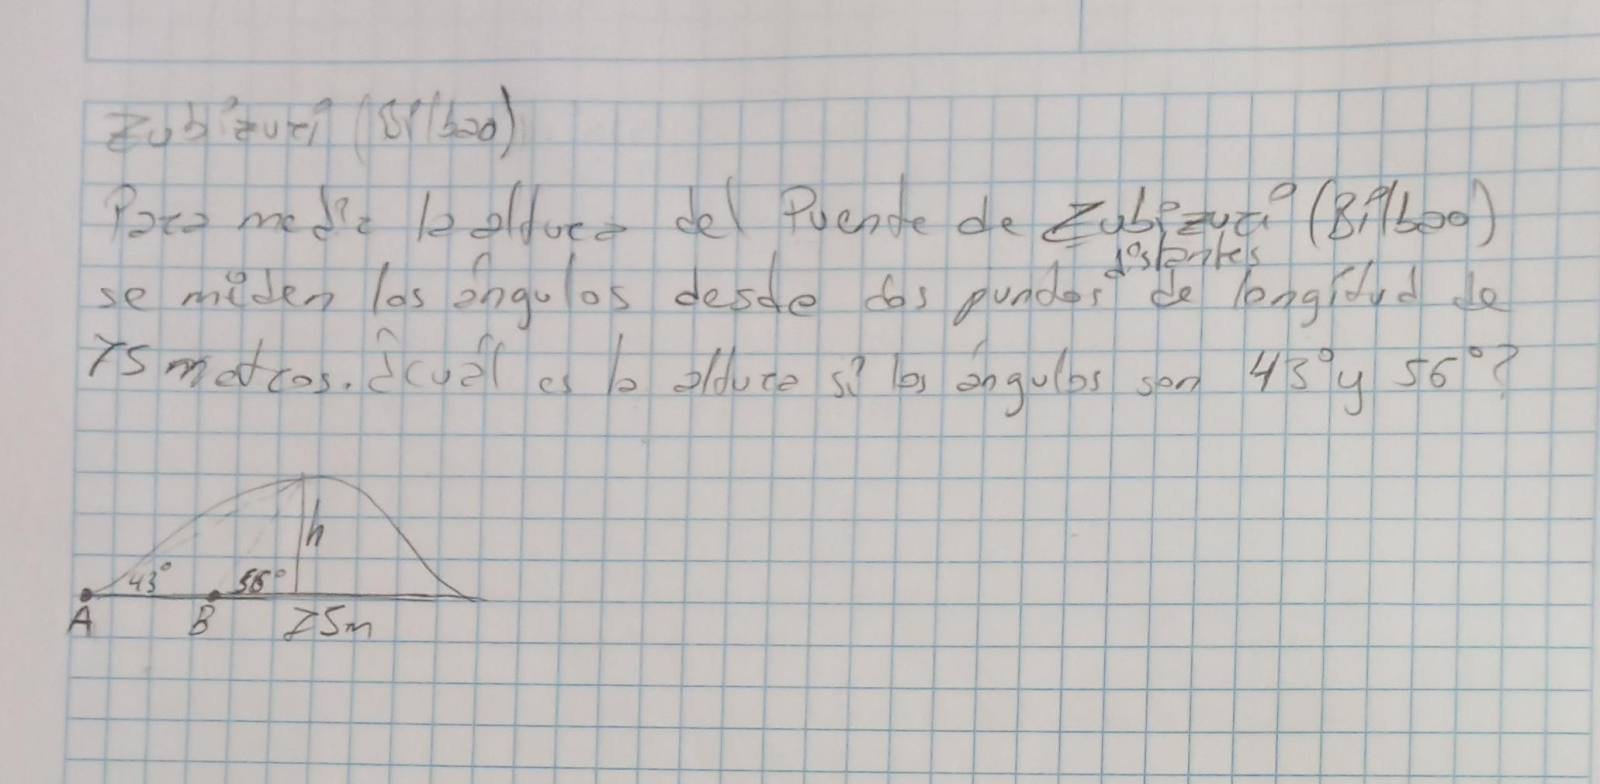 Zubizuri (Bilbao)
Para medir la altura del Puente de Zubizuri (Bilbao)
distantes
se miden los ángulos desde dos puntos de longitud de
75 metros. ¿Cuál es la altura si los ángulos son 43° y 56°?
h
43° 56°
A B 75m